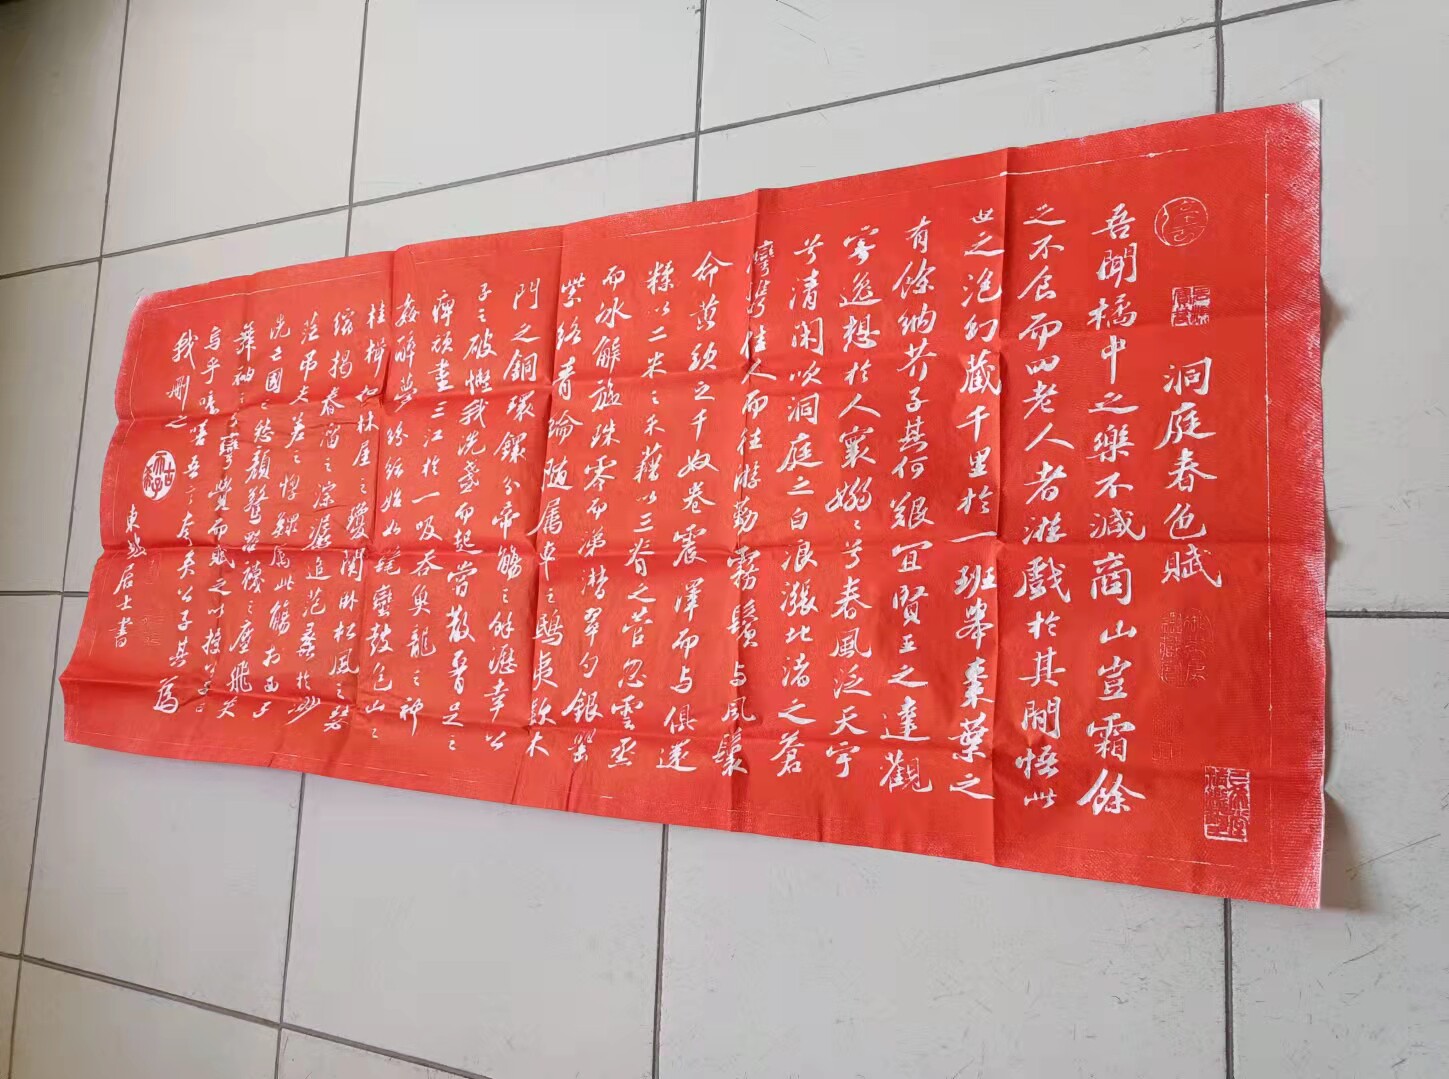 洞庭春色賦
吾聞橘中之樂不減商山豈霜餘
之不食而四老人者游戲於其間悟此
世之泡幻藏千里於一班舉棗葉之
有餘納芥子其何艱宜賢王之達觀
寄逸想於人寰嫋〻兮春風泛天宇
兮清閑吹洞庭之白浪漲北渚之蒼
灣攜佳人而往游勤霧鬢與風鬟
命黃頭之千奴卷震澤而與俱還
糅以二米之禾藉以三脊之菅忽雲烝
而冰解旋珠零而涕潸翠勺銀罌
紫絡青綸隨屬車之鴟夷款木
門之銅環分帝觴之餘瀝幸公
子之破慳我洗盞而起嘗散腰足之
痺頑盡三江於一吸吞魚龍之神
姦醉夢紛紜始如髦蠻鼓包山之
桂楫扣林屋之瓊關臥松風之瑟
縮揭春溜之淙潺追范蠡於渺
茫弔夫差之惸鰥屬此觴於西子
洗亡國之愁顏驚羅襪之塵飛失
舞袖之弓彎覺而賦之以授公子曰
烏乎噫嘻吾言夸矣公子其為
我刪之
東坡居士書